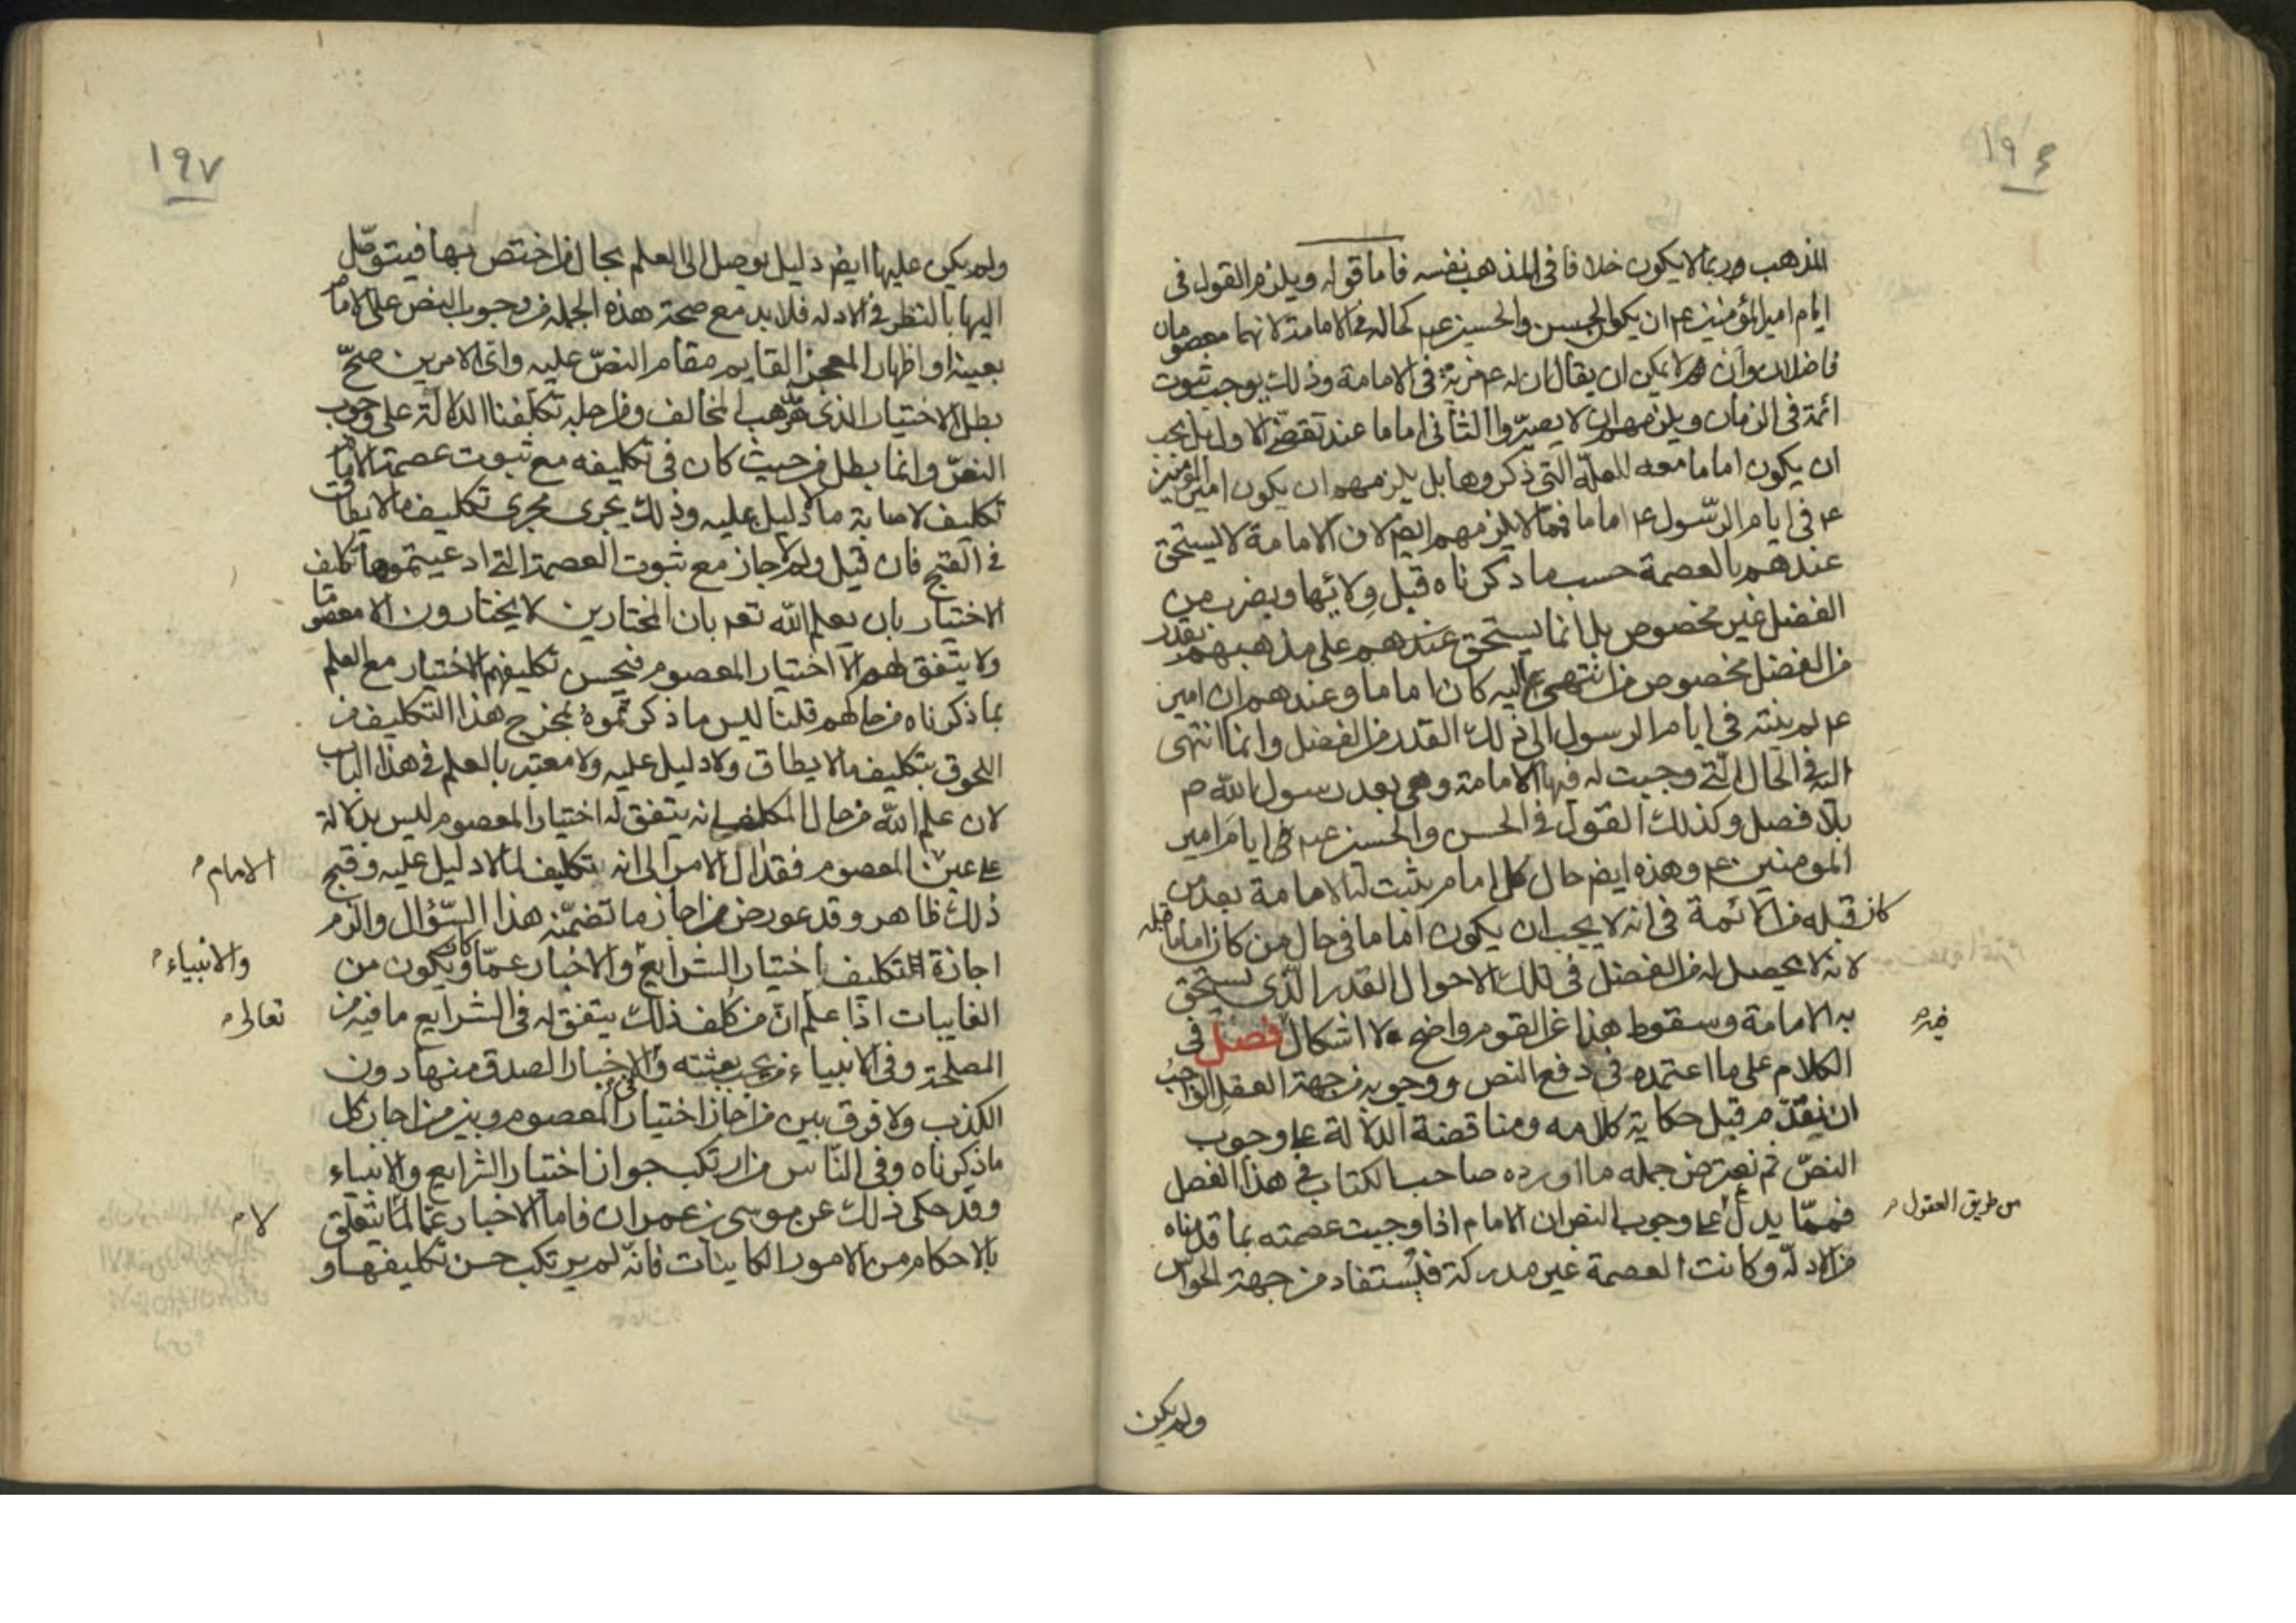 ١٩٦
المذهب وربما لا يكون خلافا في المذهب نفسه فاما قوله ويلزم القول في
ايام امير المؤمنين عم ان يكون الحسن والحسين عم كحاله في الامامة لانهما معصومان
فاضلان وان لا يمكن ان يقال ان له عم مزية في الامامة وذلك يوجب ثبوت
ائمة في الزمان ويلزمهم ان لا يصيروا الثاني اماما عند تقضي الاول بل يجب
ان يكون اماما معه للعلة التي ذكروها بل يلزمهم ان يكون امير المؤمنين
عم في ايام الرسول عم اماما فمما لا يلزمهم ايضا لان الامامة لا يستحق
عندهم بالعصمة حسب ما ذكرناه قبل ولا بها وبضرب من
الفضل غير مخصوص بل انما يستحق عندهم على مذهبهم بقدر
من الفضل مخصوص من انتهى اليه كان اماما وعندهم ان امير
عم لم ينته في ايام الرسول الى ذلك القدر من الفضل وانما انتهى
اليه في الحال التي وجبت له فيها الامامة وهي بعد رسول الله ص
بلا فصل وكذلك القول في الحسن والحسين عم في ايام امير
المومنين عم وهذه ايضا حال كل امام يثبت له الامامة بعد من
كان قبله من الائمة في انه لا يجب ان يكون اماما في حال من كان اماما قبله
لانه لا يحصل له من الفضل في تلك الاحوال القدر الذي يستحق
به الامامة وسقوط هذا عن القوم واضح ولا اشكال فصل في
فيه
الكلام على ما اعتمده في دفع النص ووجوبه من جهة العقل الواجب
ان نقدم قبل حكاية كلامه ومناقضة الدلالة على وجوب
النص ثم نعترض جمله ما اورده صاحب الكتاب في هذا الفصل
فمما يدل على وجوب النص ان الامام اذا وجبت عصمته بما قدمناه
من طريق العقول
من الادلة وكانت العصمة غير مدركة فيستفاد من جهة الحواس
ولم يكن
١٩٧
ولم يكن عليها ايضا دليل يوصل الى العلم بحال من اختص بها فيتوصل
اليها بالنظر في الادله فلا بد مع صحة هذه الجمله من وجوب النص على الامام
بعينه او اظهار المعجز القايم مقام النص عليه واي الامرين صح
بطل الاختيار الذي هو مذهب المخالف ومن اجله تكلفنا الدلالة على وجوب
النص وانما بطل من حيث كان في تكليفه مع ثبوت عصمة الامام
تكليف لاصابة ما لا دليل عليه وذلك يجري مجرى تكليف ما لا يطاق
في القبح فان قيل ولم لا جاز مع ثبوت العصمة التي ادعيتموها تكليف
الاختيار بان يعلم الله تعم بان المختارين لا يختارون الا معصوما
ولا يتفق لهم الا اختيار المعصوم فيحسن تكليفهم الاختيار مع العلم
بما ذكرناه من حالهم قلنا ليس ما ذكرتموه بمخرج هذا التكليف من
اللحوق بتكليف ما لا يطاق ولا دليل عليه ولا معتبر بالعلم في هذا الباب
لان علم الله من حال المكلف انه يتفق له اختيار المعصوم ليس بدلالة
على عين المعصوم فقد ال الامر الى انه تكليف لما لا دليل عليه وقبح
الامام
ذلك ظاهر وقد عورض من اجاز ما تضمنه هذا السؤال والزم
اجازة التكليف باختيار الشرايع والاخبار عما كان ويكون من
والانبياء
الغايبات اذا علم ان من كلف ذلك يتفق له في الشرايع ما فيه من
تعالى
المصلحة وفي الانبياء من يجب بعثته وفي الاخبار الصدق منها دون
الكذب ولا فرق بين من اجاز اختيار المعصوم وبين من اجاز كل
ما ذكرناه وفي الناس من ارتكب جواز اختيار الشرايع والانبياء
وقد حكى ذلك عن موسى بن عمران فاما الاخبار عما لما يتعلق
لا
بالاحكام من الامور الكاينات فانه لم يرتكب حسن تكليفها و